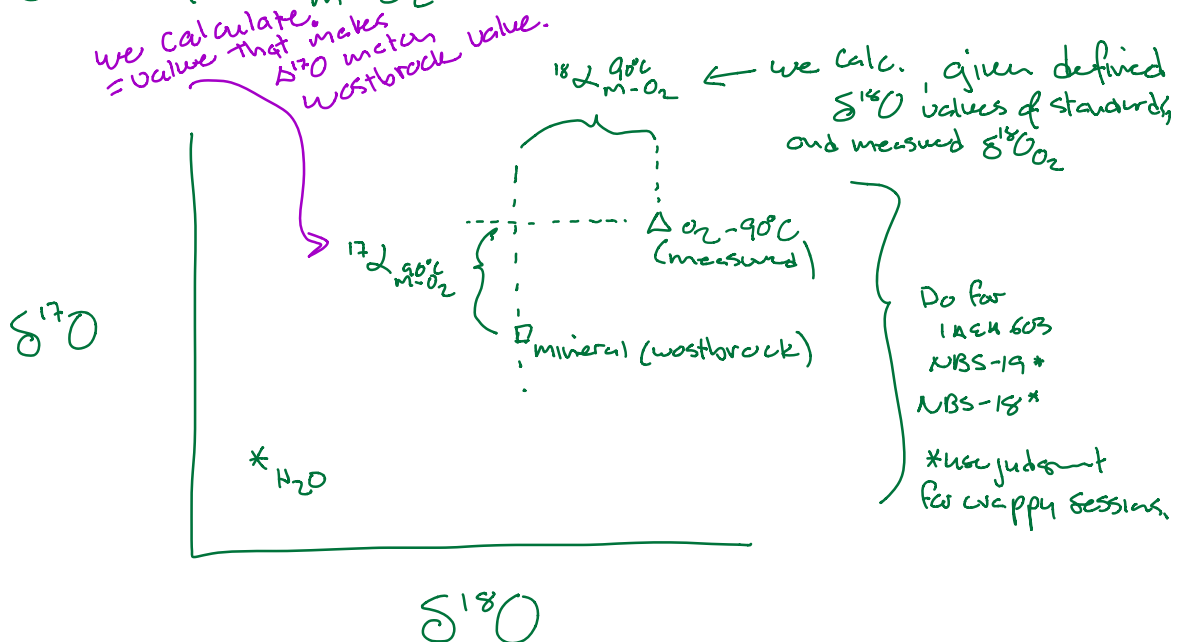 M-O2
we calculate.
= value that makes
Δ17O match
Wostbrock value.
18α 90°C M-O2 ← we calc. given defined
δ18O values of standards,
and measured δ18O O2
△ O2-90°C
(measured)
17α 90°C M-O2
□ mineral (wostbrock)
δ17O
* H2O
δ18O
Do for
IAEA 603
NBS-19 *
NBS-18 *
*use judgment
for crappy sessions.